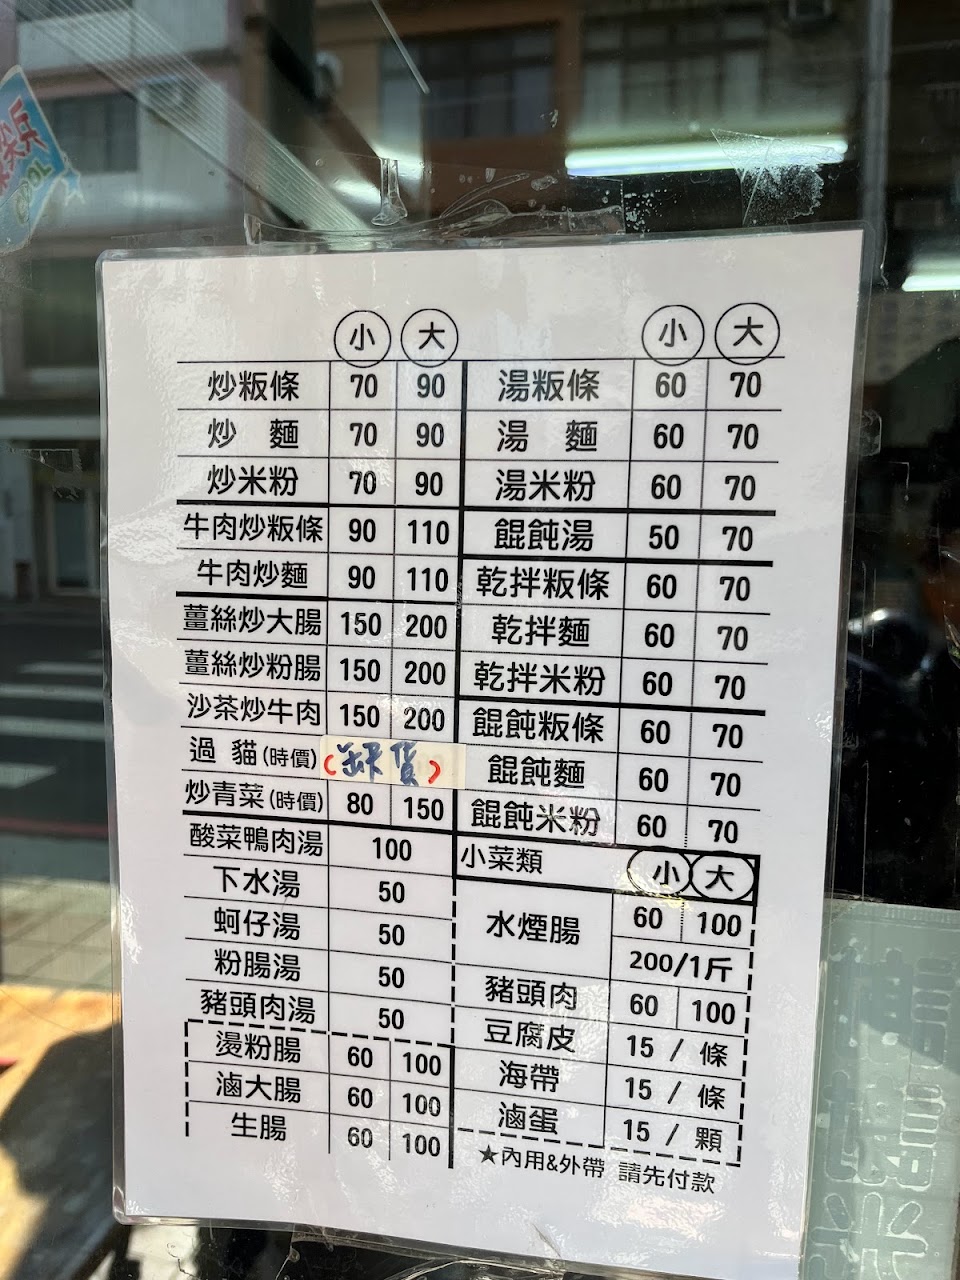 小 大
炒粄條 70 90
炒 麵 70 90
炒米粉 70 90
牛肉炒粄條 90 110
牛肉炒麵 90 110
薑絲炒大腸 150 200
薑絲炒粉腸 150 200
沙茶炒牛肉 150 200
過 貓(時價) (缺貨)
炒青菜(時價) 80 150
酸菜鴨肉湯 100
下水湯 50
蚵仔湯 50
粉腸湯 50
豬頭肉湯 50
燙粉腸 60 100
滷大腸 60 100
生腸 60 100
小 大
湯粄條 60 70
湯 麵 60 70
湯米粉 60 70
餛飩湯 50 70
乾拌粄條 60 70
乾拌麵 60 70
乾拌米粉 60 70
餛飩粄條 60 70
餛飩麵 60 70
餛飩米粉 60 70
小菜類 小 大
水煙腸 60 100
200/1斤
豬頭肉 60 100
豆腐皮 15 / 條
海帶 15 / 條
滷蛋 15 / 顆
★內用&外帶 請先付款